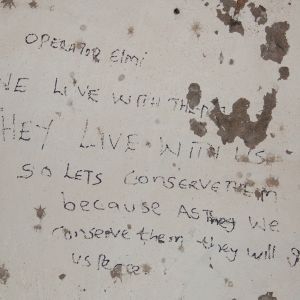 OPERATOR Elmi
WE LIVE WITH THEM
THEY LIVE WITH US
SO LETS CONSERVE THEM
because AS They WE
conserve them they will
US Peace